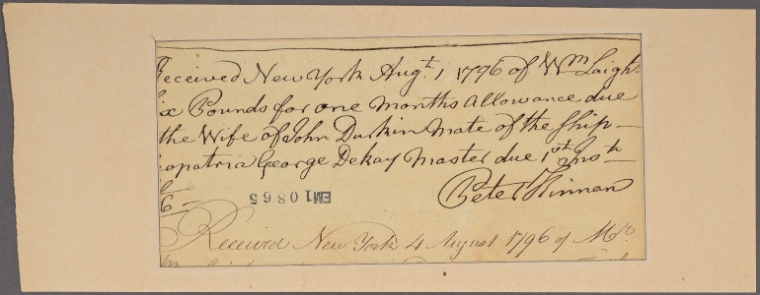 Received New York Augt. 1 1796 of Wm Laight
Six Pounds for one months allowance due
the Wife of John Durkin Mate of the Ship
opatria George Dekay Master due 1st Inst
£6 –
Peter Kinnan
EM10865
Received New York 4 August 1796 of Mr.